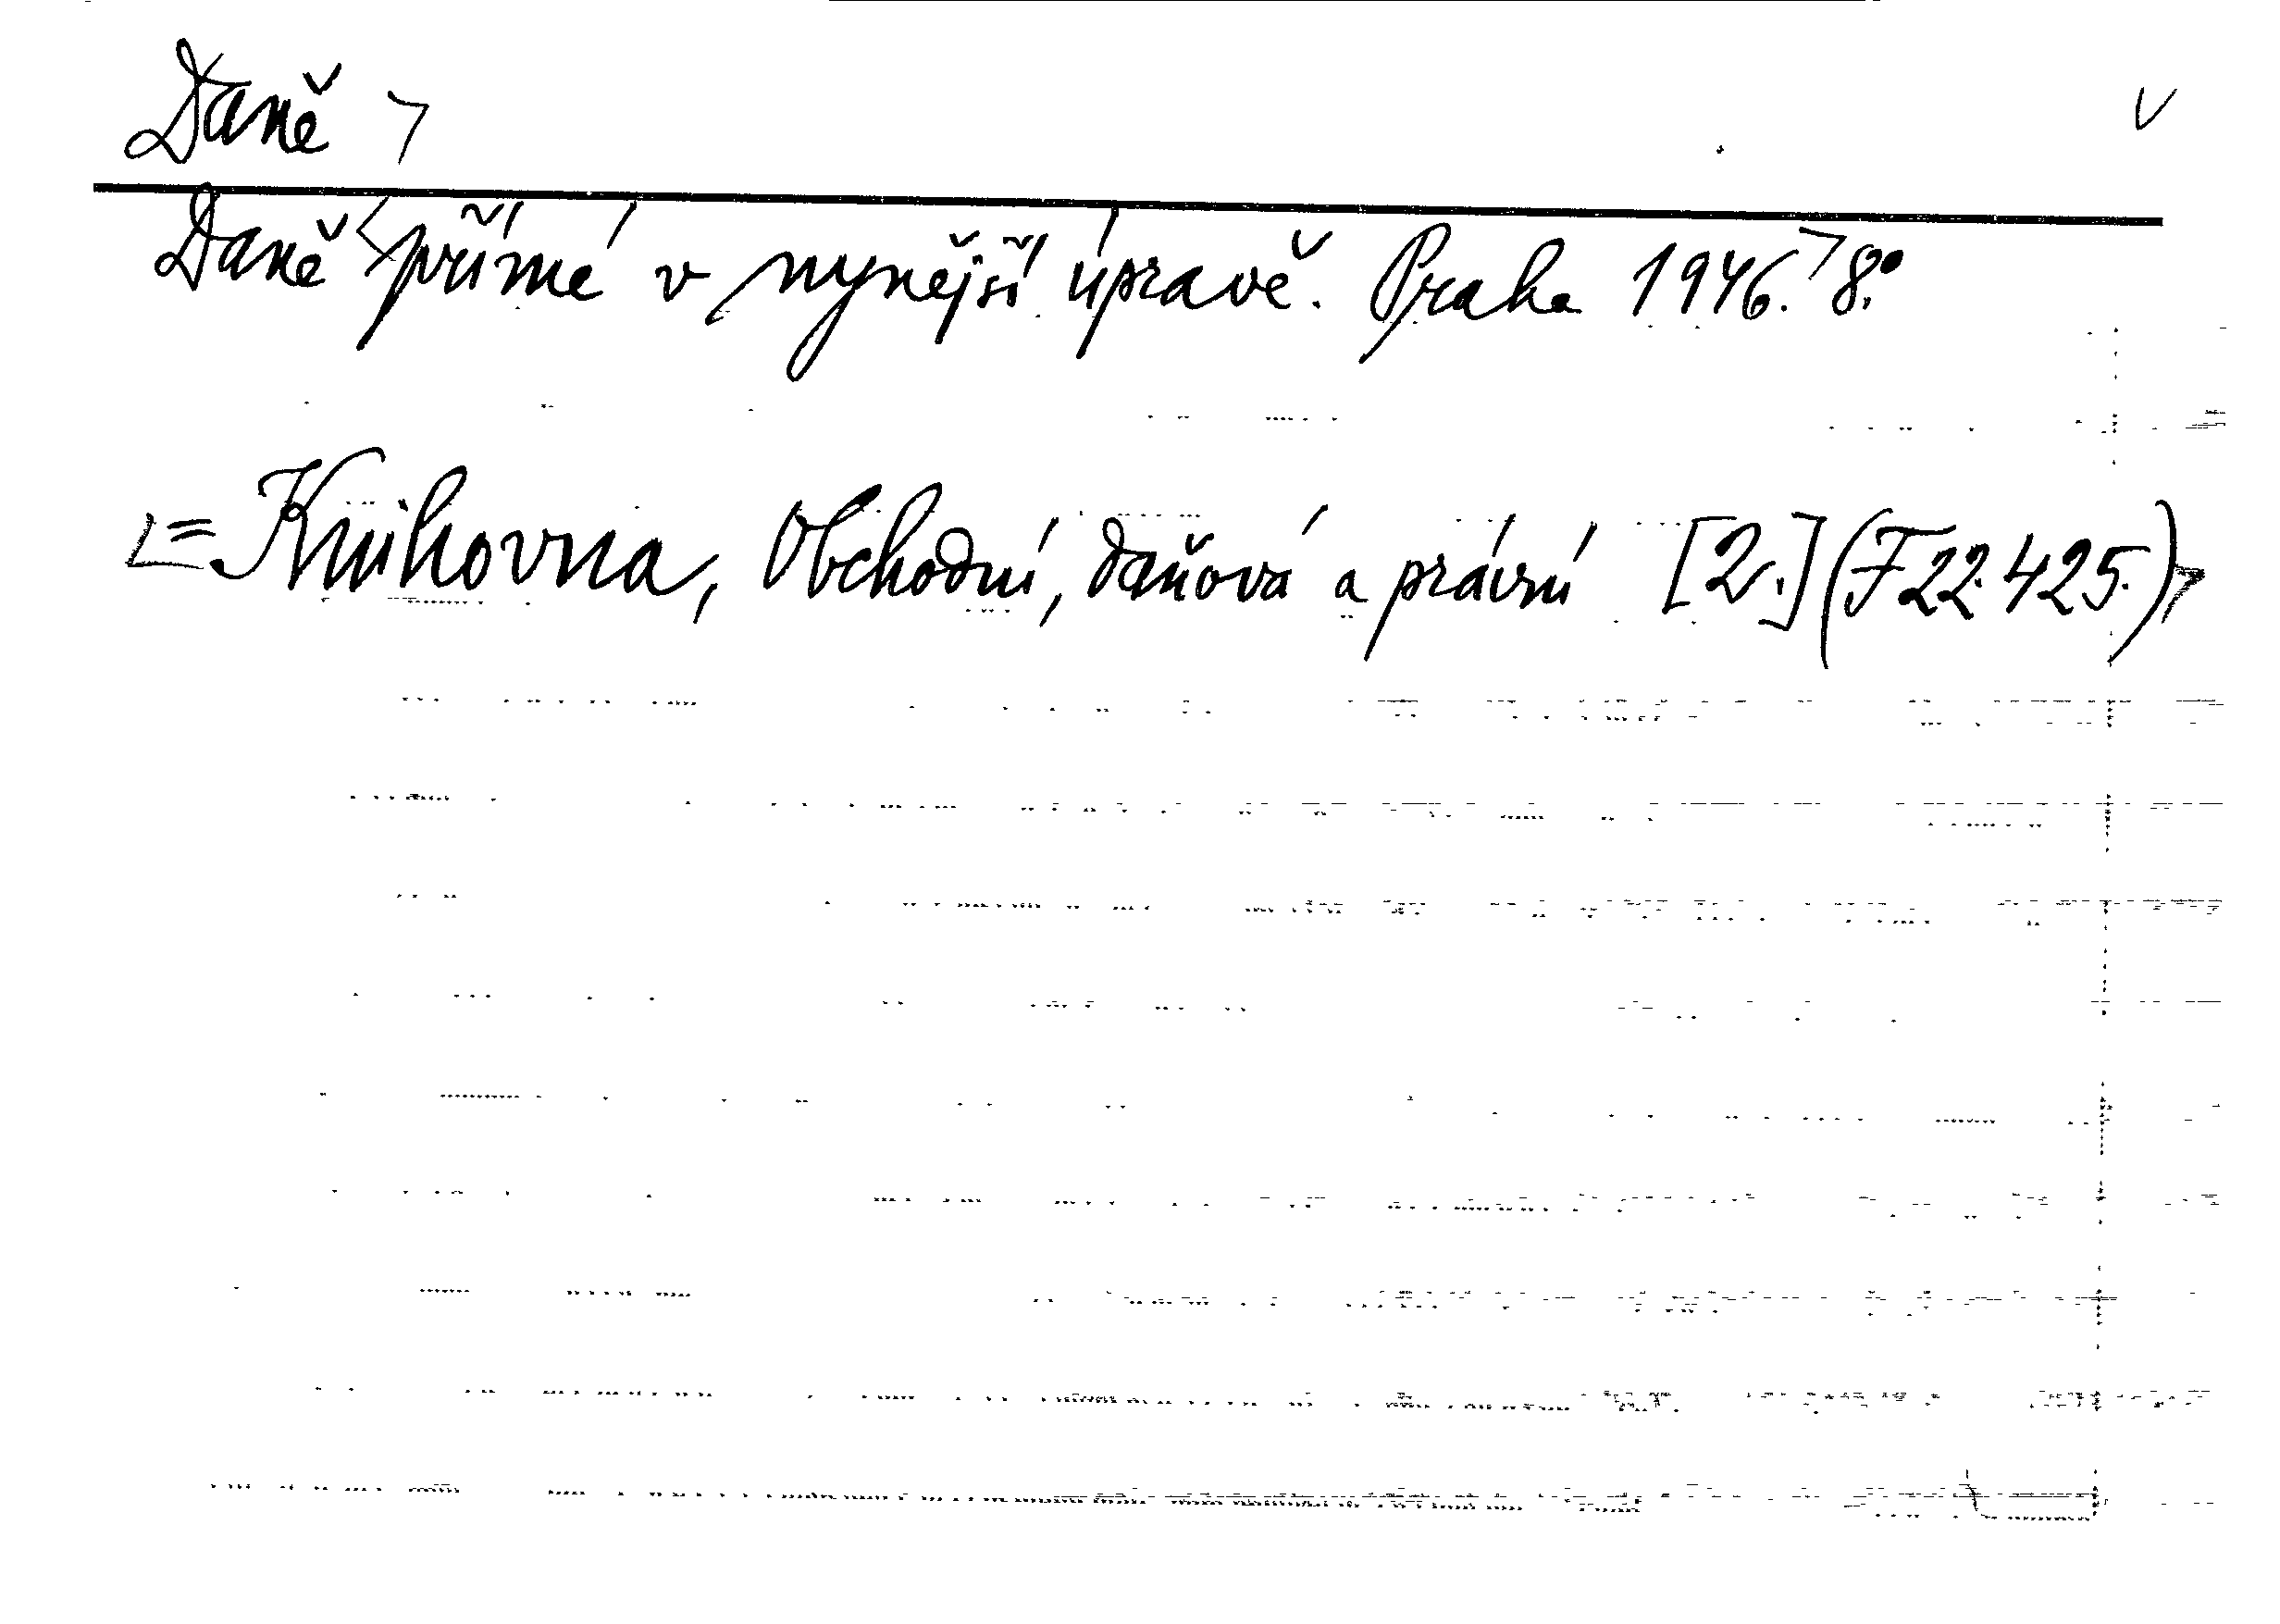 Daně ⌝ v
Daně přímé v nynější úpravě. Praha 1946. 8°.
= Knihovna, Obchodní, daňová a právní [2.] (F 22.425.)